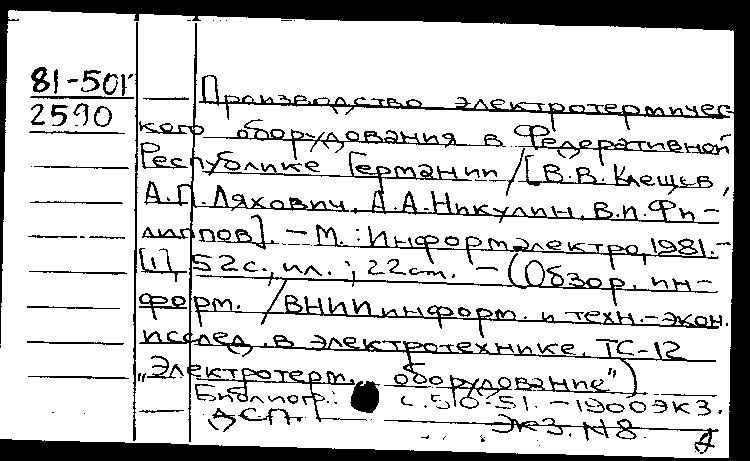 81-501
2590
Производство электротермичес
кого оборудования в Федеративной
Республике Германии /[В.В. Клещев,
А.П. Ляхович, А.А. Никулин, В.П. Фи-
липпов]. - М.: Информэлектро, 1981.-
[1], 52с., ил.; 22см. - (Обзор. ин-
форм. /ВНИИ информ. и техн.-экон.
исслед. в электротехнике. ТС-12
"Электротерм. оборудование")
Библиогр.: с. 50-51. - 1900 экз.
ДСП. Экз. N8.